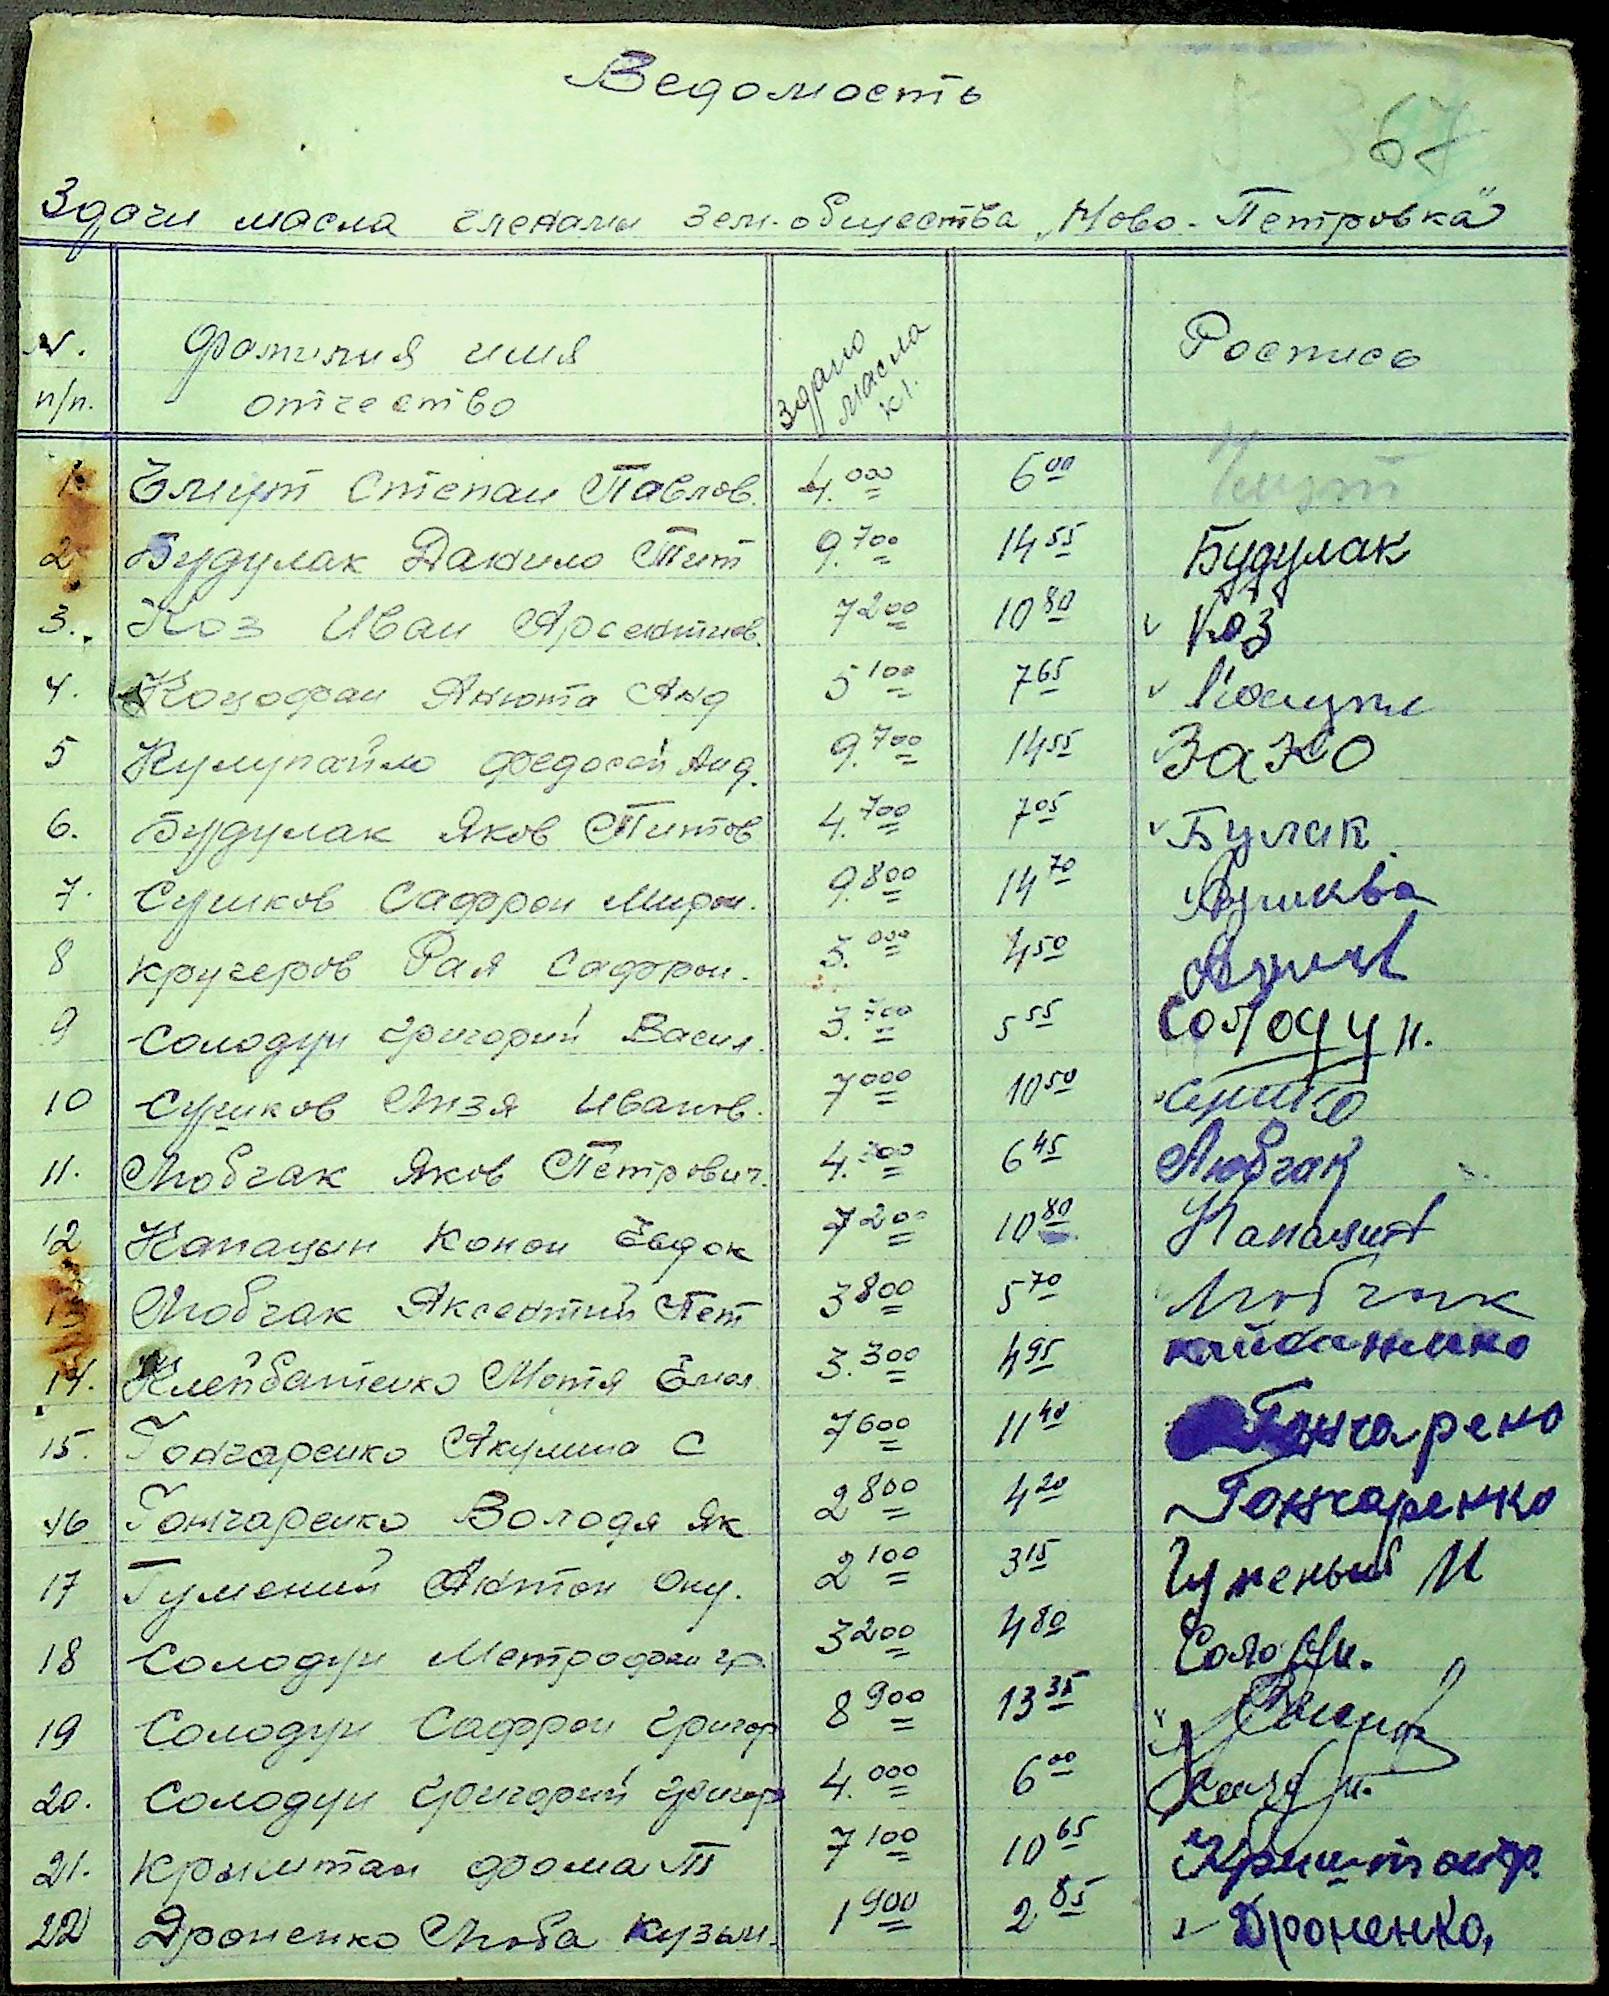 Ведомость
67
Здачи масла членами зем-общества „Ново-Петровка"
N. п/п. фамилия имя отчество Здано масла кг. Роспись
1. Степан Павлов. 4.000 6 00
2 Будулак Данило Тит 9.700 14 55 Будулак
3. Коз Иван Арсентиев. 7 200 10 80 Коз
4. Коцофан Анюта Анд 5 100 7 65
5 Кулупайло Федосей Анд. 9.700 14 55 Зако
6. Будулак Яков Титов 4.700 7 05 Булак
7. Сушков Сафрон Мирон. 9.800 14 70
8 Кручеров Рая Сафрон. 3.000 4 50
9 Солодун Григорий Васил. 3.700 5 55 Солодун.
10 Сушков Лизя Иванов. 7 000 10 50
11. Любчак Яков Петрович. 4. 6 45 Любчак
12 Капацын Конон Евдок 7 200 10 80 Капацин
13 Любчак Аксентий Пет 3 800 5 70 Любчак
14. Клейбатенко Мотя 3.300 4 95
15. Гончаренко Акулина С 7 600 11 40 Гончарено
16 Гончаренко Володя Як 2 800 4 20 Гончаренко
17 Гумений Антон Ону. 2 100 3 15 Гуменый
18 Солодун Метрофан гр. 3 200 4 80
19 Солодун Сафрон Григор 8 900 13 35
20. Солодун Григорий Григор 4.000 6 00
21. Крыштан фома Т 7 100 10 65
22 Дроненко Люба Кузьм. 1 900 2 85 Дроненко,